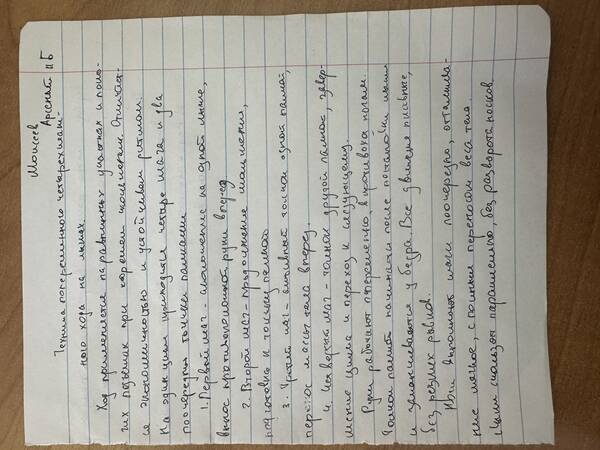 Моисеев
Арсений 11Б
Техника попеременного четырехшаж-
ного хода на лыжах.
Ход применяется на равнинных участках и поло-
гих подъемах при хорошем скольжении. Отличает-
ся экономичностью и устойчивым ритмом.
На один цикл приходится четыре шага и два
поочередных толчка палками
1. Первый шаг - скольжение на одной лыже,
вынос противоположной руки вперед
2. Второй шаг - продолжение скольжения,
подготовка к толчку палкой
3. Третий шаг - активный толчок одной палкой,
перенос массы тела вперед.
4. Четвертый шаг - толчок другой палкой, завер-
шение цикла и переход к следующему.
Руки работают попеременно, в противовес ногам.
Толчок палкой начинается после постановки
и заканчивается у бедра. Все движения плавные,
без резких рывков.
Ноги выполняют шаги поочередно, отталкива-
ние мягкое, с полным переносом веса тела.
Лыжи скользят параллельно, без разворота носков.